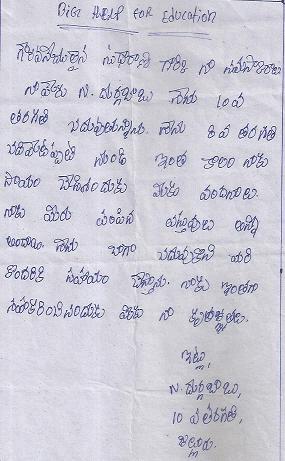 BIG HELP FOR EDUCATION
గౌరవనీయులైన సుధారాణి గారికి నా నమస్కారాలు
నా పేరు N. దుర్గాబాబు నేను 10వ
తరగతి చదువుతున్నాను. నేను 8వ తరగతి
చదివేటప్పటి నుండి ఇంత కాలం నాకు
సాయం చేసినందుకు మీకు వందనాలు.
నాకు మీరు పంపిన వస్తువులు అన్ని
అందాయి నేను బాగా చదువుకొని మరి
కొందరికి సహాయం చేస్తాను. నాకు ఇంతగా
సహకరించినందుకు మీకు నా కృతజ్ఞతలు.
ఇట్లు,
N. దుర్గాబాబు,
10 వ తరగతి,